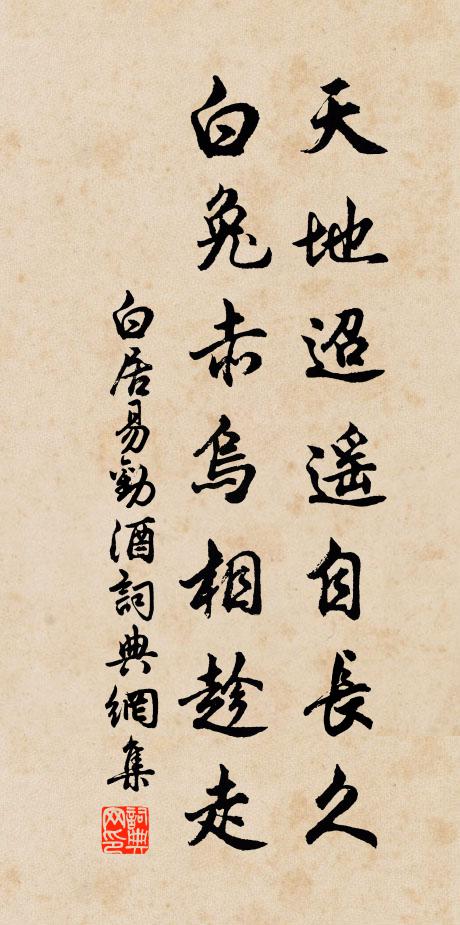 天地迢遥自長久
白兔赤烏相趁走
白居易勸酒詞典網集
詞典网印